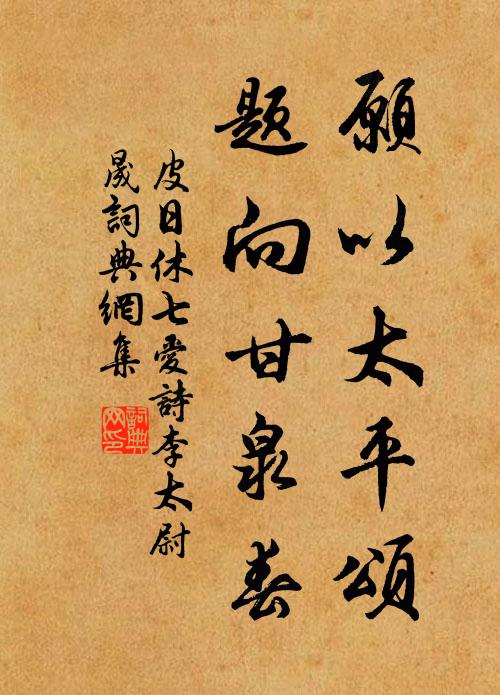 願以太平頌
題向甘泉春
皮日休七愛詩李太尉
晟詞典網集
詞典網印